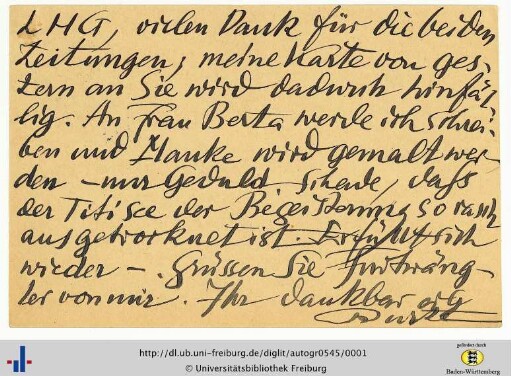 L H G, vielen Dank für die beiden
Zeitungen, meine Karte von ges-
tern an Sie wird dadurch hinfäl-
lig. An Frau Berta werde ich schrei-
ben und Hanke wird gemalt wer-
den – nur Geduld. Schade, dass
der Titisee der Begeisterung so rasch
ausgetrocknet ist. Er füllt sich
wieder –. Grüssen Sie Furtwäng-
ler von mir. Ihr dankbar erg
http://dl.ub.uni-freiburg.de/diglit/autogr0545/0001
© Universitätsbibliothek Freiburg
gefördert durch
Baden-Württemberg